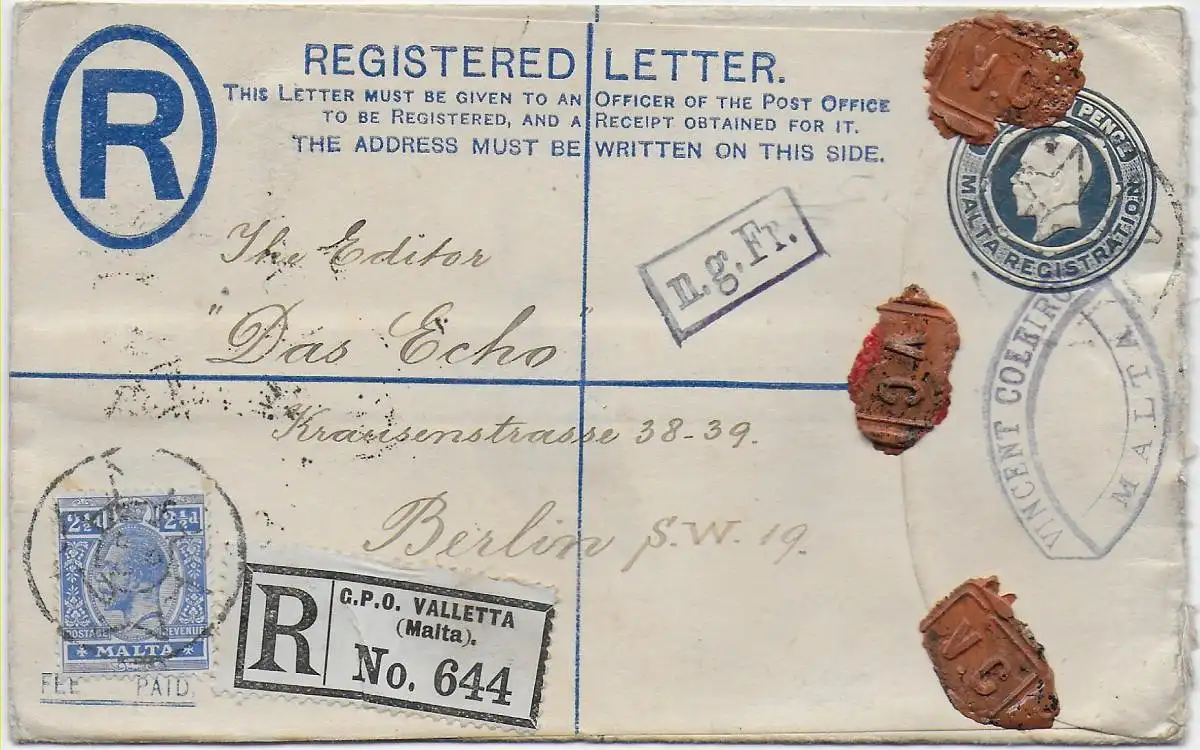 R
REGISTERED LETTER.
THIS LETTER MUST BE GIVEN TO AN OFFICER OF THE POST OFFICE
TO BE REGISTERED, AND A RECEIPT OBTAINED FOR IT.
THE ADDRESS MUST BE WRITTEN ON THIS SIDE.
V.C
PENCE
MALTA REGISTRATION
The Editor
n.g.Fr.
"Das Echo"
V.C
VINCENT COLEIRO
MALTA
Krausenstrasse 38-39.
Berlin S.W. 19.
2½d 2½d
POSTAGE REVENUE
MALTA
FEE PAID
R
G.P.O. VALLETTA
(Malta).
No. 644
V.C